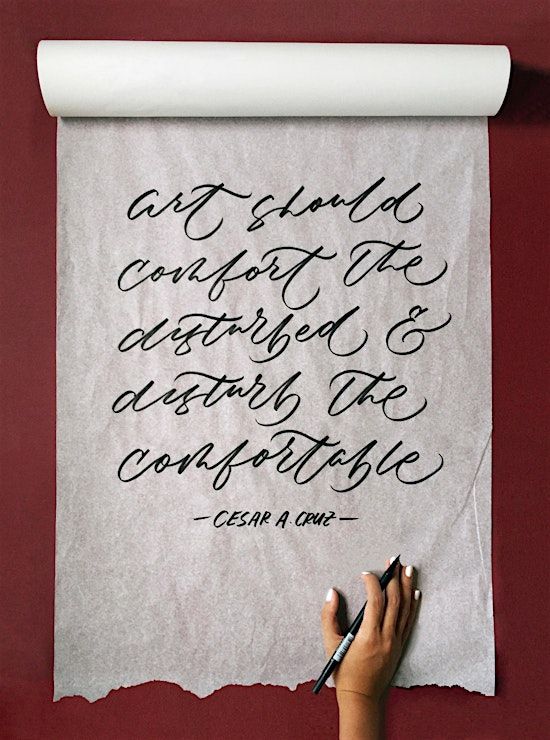 art should
comfort the
disturbed &
disturb the
comfortable
—CESAR A. CRUZ—